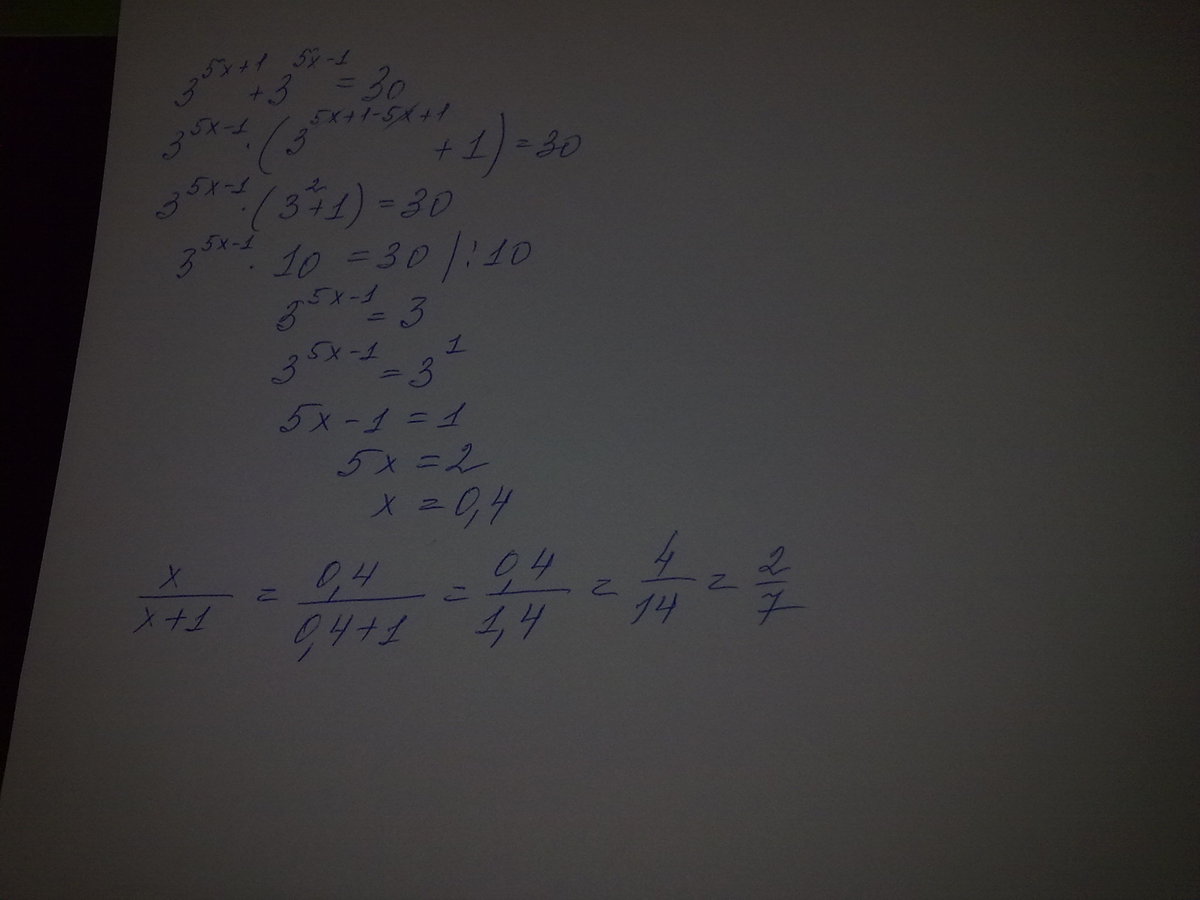 3^{5x+1} + 3^{5x-1} = 30
3^{5x-1} · (3^{5x+1-5x+1} + 1) = 30
3^{5x-1} · (3^2 + 1) = 30
3^{5x-1} · 10 = 30 |:10
3^{5x-1} = 3
3^{5x-1} = 3^1
5x - 1 = 1
5x = 2
x = 0,4
x/(x+1) = 0,4/(0,4+1) = 0,4/1,4 = 4/14 = 2/7